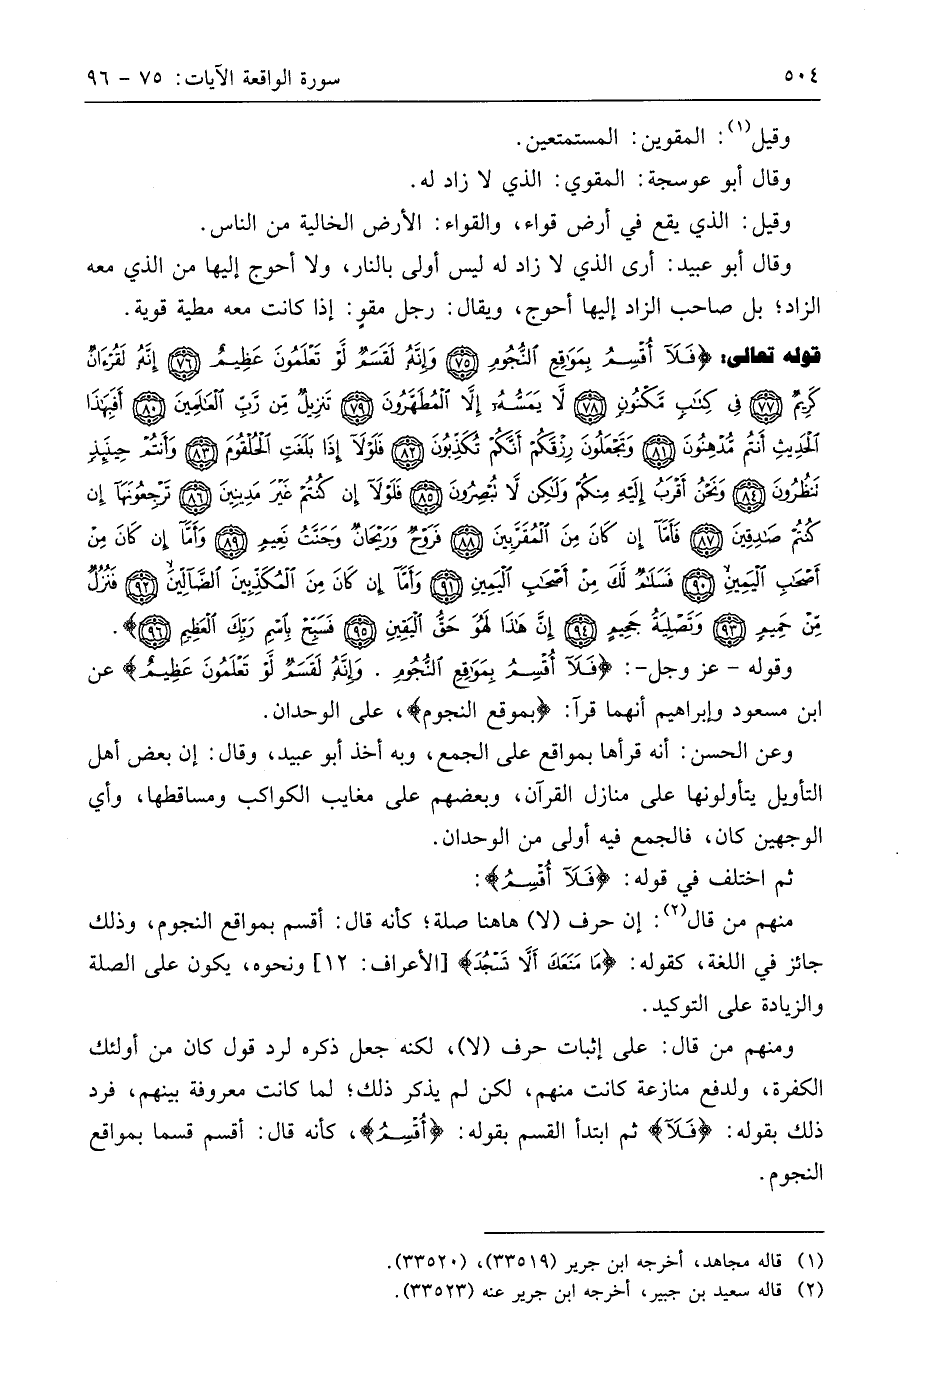 ٥٠٤ سورة الواقعة الآيات: ٧٥ - ٩٦
وقيل(١): المقوين: المستمتعين.
وقال أبو عوسجة: المقوي: الذي لا زاد له.
وقيل: الذي يقع في أرض قواء، والقواء: الأرض الخالية من الناس.
وقال أبو عبيد: أرى الذي لا زاد له ليس أولى بالنار، ولا أحوج إليها من الذي معه
الزاد؛ بل صاحب الزاد إليها أحوج، ويقال: رجل مقوٍ: إذا كانت معه مطية قوية.
قوله تعالى: ﴿فَلَآ أُقْسِمُ بِمَوَٰقِعِ ٱلنُّجُومِ ﴿٧٥﴾ وَإِنَّهُۥ لَقَسَمٌ لَّوْ تَعْلَمُونَ عَظِيمٌ ﴿٧٦﴾ إِنَّهُۥ لَقُرْءَانٌ
كَرِيمٌ ﴿٧٧﴾ فِى كِتَٰبٍ مَّكْنُونٍ ﴿٧٨﴾ لَّا يَمَسُّهُۥٓ إِلَّا ٱلْمُطَهَّرُونَ ﴿٧٩﴾ تَنزِيلٌ مِّن رَّبِّ ٱلْعَٰلَمِينَ ﴿٨٠﴾ أَفَبِهَٰذَا
ٱلْحَدِيثِ أَنتُم مُّدْهِنُونَ ﴿٨١﴾ وَتَجْعَلُونَ رِزْقَكُمْ أَنَّكُمْ تُكَذِّبُونَ ﴿٨٢﴾ فَلَوْلَآ إِذَا بَلَغَتِ ٱلْحُلْقُومَ ﴿٨٣﴾ وَأَنتُمْ حِينَئِذٍ
تَنظُرُونَ ﴿٨٤﴾ وَنَحْنُ أَقْرَبُ إِلَيْهِ مِنكُمْ وَلَٰكِن لَّا تُبْصِرُونَ ﴿٨٥﴾ فَلَوْلَآ إِن كُنتُمْ غَيْرَ مَدِينِينَ ﴿٨٦﴾ تَرْجِعُونَهَآ إِن
كُنتُمْ صَٰدِقِينَ ﴿٨٧﴾ فَأَمَّآ إِن كَانَ مِنَ ٱلْمُقَرَّبِينَ ﴿٨٨﴾ فَرَوْحٌ وَرَيْحَانٌ وَجَنَّتُ نَعِيمٍ ﴿٨٩﴾ وَأَمَّآ إِن كَانَ مِنْ
أَصْحَٰبِ ٱلْيَمِينِ ﴿٩٠﴾ فَسَلَٰمٌ لَّكَ مِنْ أَصْحَٰبِ ٱلْيَمِينِ ﴿٩١﴾ وَأَمَّآ إِن كَانَ مِنَ ٱلْمُكَذِّبِينَ ٱلضَّآلِّينَ ﴿٩٢﴾ فَنُزُلٌ
مِّنْ حَمِيمٍ ﴿٩٣﴾ وَتَصْلِيَةُ جَحِيمٍ ﴿٩٤﴾ إِنَّ هَٰذَا لَهُوَ حَقُّ ٱلْيَقِينِ ﴿٩٥﴾ فَسَبِّحْ بِٱسْمِ رَبِّكَ ٱلْعَظِيمِ ﴿٩٦﴾﴾.
وقوله - عز وجل-: ﴿فَلَآ أُقْسِمُ بِمَوَٰقِعِ ٱلنُّجُومِ . وَإِنَّهُۥ لَقَسَمٌ لَّوْ تَعْلَمُونَ عَظِيمٌ﴾ عن
ابن مسعود وإبراهيم أنهما قرآ: ﴿بموقع النجوم﴾، على الوحدان.
وعن الحسن: أنه قرأها بمواقع على الجمع، وبه أخذ أبو عبيد، وقال: إن بعض أهل
التأويل يتأولونها على منازل القرآن، وبعضهم على مغايب الكواكب ومساقطها، وأي
الوجهين كان، فالجمع فيه أولى من الوحدان.
ثم اختلف في قوله: ﴿فَلَآ أُقْسِمُ﴾:
منهم من قال(٢): إن حرف (لا) هاهنا صلة؛ كأنه قال: أقسم بمواقع النجوم، وذلك
جائز في اللغة، كقوله: ﴿مَا مَنَعَكَ أَلَّا تَسْجُدَ﴾ [الأعراف: ١٢] ونحوه، يكون على الصلة
والزيادة على التوكيد.
ومنهم من قال: على إثبات حرف (لا)، لكنه جعل ذكره لرد قول كان من أولئك
الكفرة، ولدفع منازعة كانت منهم، لكن لم يذكر ذلك؛ لما كانت معروفة بينهم، فرد
ذلك بقوله: ﴿فَلَآ﴾ ثم ابتدأ القسم بقوله: ﴿أُقْسِمُ﴾، كأنه قال: أقسم قسما بمواقع
النجوم.
(١) قاله مجاهد، أخرجه ابن جرير (٣٣٥١٩)، (٣٣٥٢٠).
(٢) قاله سعيد بن جبير، أخرجه ابن جرير عنه (٣٣٥٢٣).